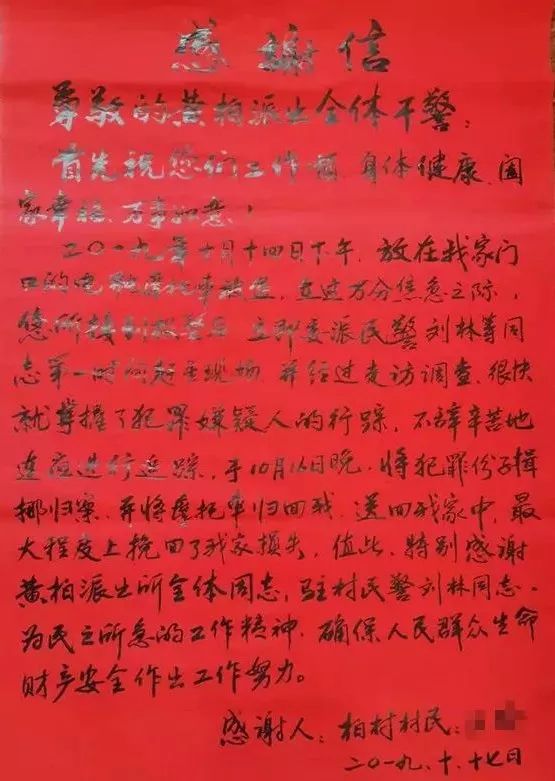 感謝信
尊敬的黄柏派出全体干警：
首先祝您们工作顺、身体健康、阖
家幸福、万事如意！
二〇一九年十月十四日下午，放在我家门
口的电动摩托车被盗，在这万分焦急之际，
您所接到报警后，立即委派民警刘林等同
志第一时间赶至现场，并经过走访调查，很快
就掌握了犯罪嫌疑人的行踪，不辞辛苦地
连夜进行追踪，于10月16日晚，将犯罪份子缉
挪归案，并将摩托车归回我，送回我家中，最
大程度上挽回了我家损失，值此，特别感谢
黄柏派出所全体同志，驻村民警刘林同志，
为民之所急的工作精神，确保人民群众生命
财产安全作出工作努力。
感谢人：柏村村民：
二〇一九、十、十七日